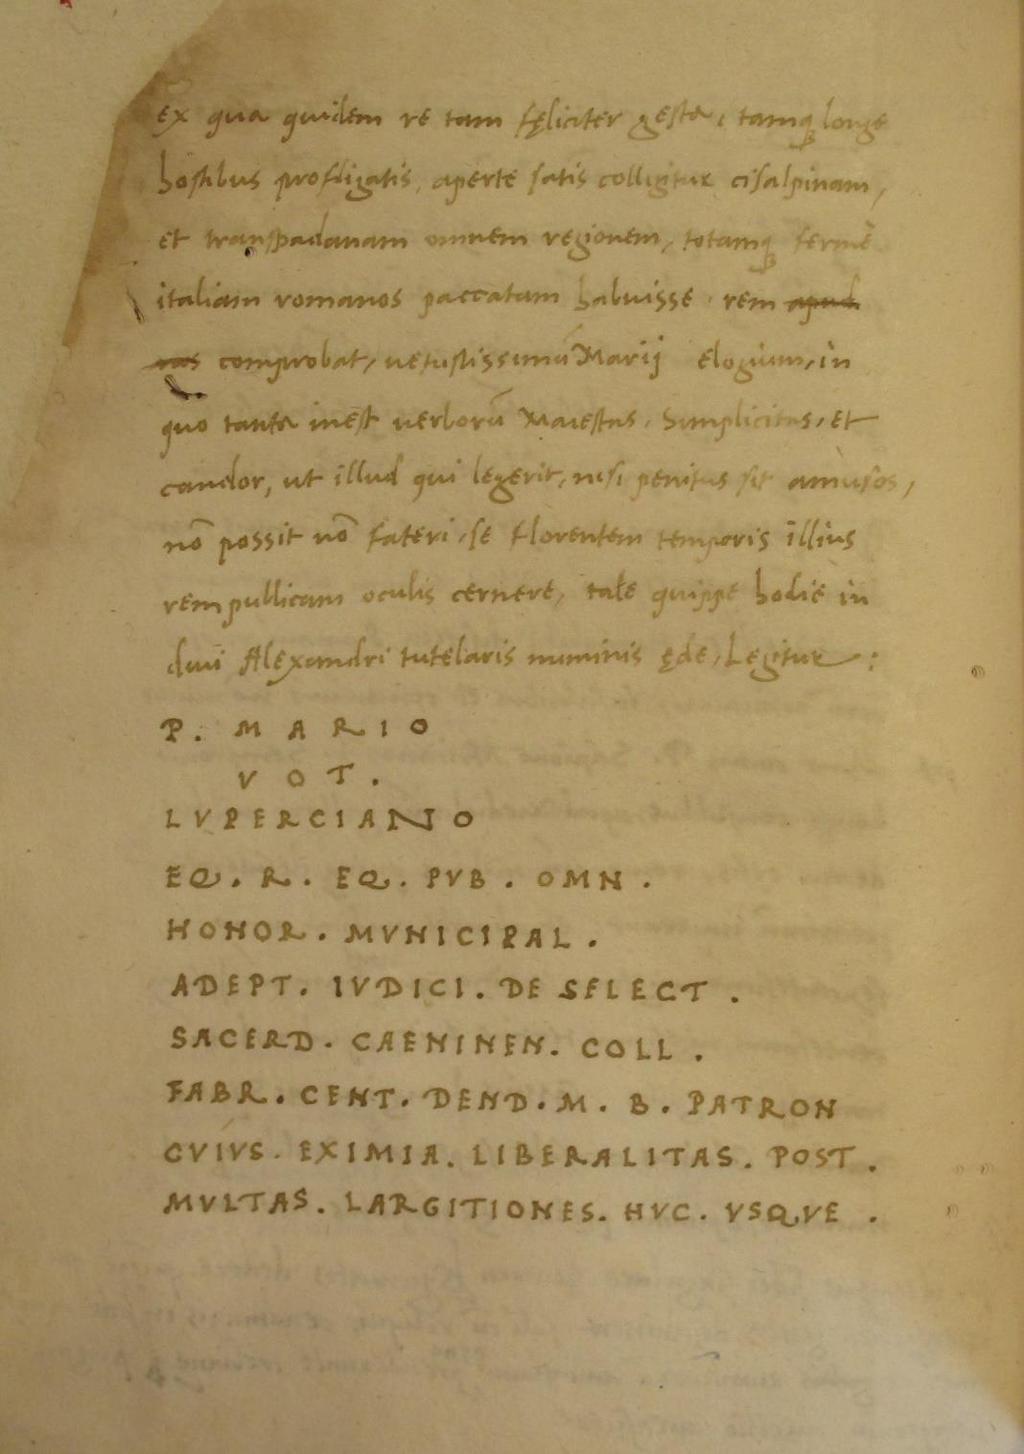 ex qua quidem re tam fęliciter gesta, tamq; longe
hostibus profligatis, aperte satis colligitur cisalpinam,
et transpadanam omnem regionem, totamq; ferme
italiam romanos paccatam habuisse. rem apud
nos comprobat, uetustissimū Marij elogium, in
quo tanta inest uerborū Maiestas, Simplicitas, et
candor, ut illud qui legerit, nisi penitus sit amusos,
nō possit nō fateri, se florentem temporis illius
rempullicam oculis cernere, tale quippe hodie in
diui Alexandri tutelaris numinis ęde, Legitur:
P. MARIO
VOT.
LVPERCIANO
EQ. R. EQ. PVB. OMN.
HONOR. MVNICIPAL.
ADEPT. IVDICI. DE SELECT.
SACERD. CAENINEN. COLL.
FABR. CENT. DEND. M. B. PATRON
CVIVS. EXIMIA. LIBERALITAS. POST.
MVLTAS. LARGITIONES. HVC. VSQVE.